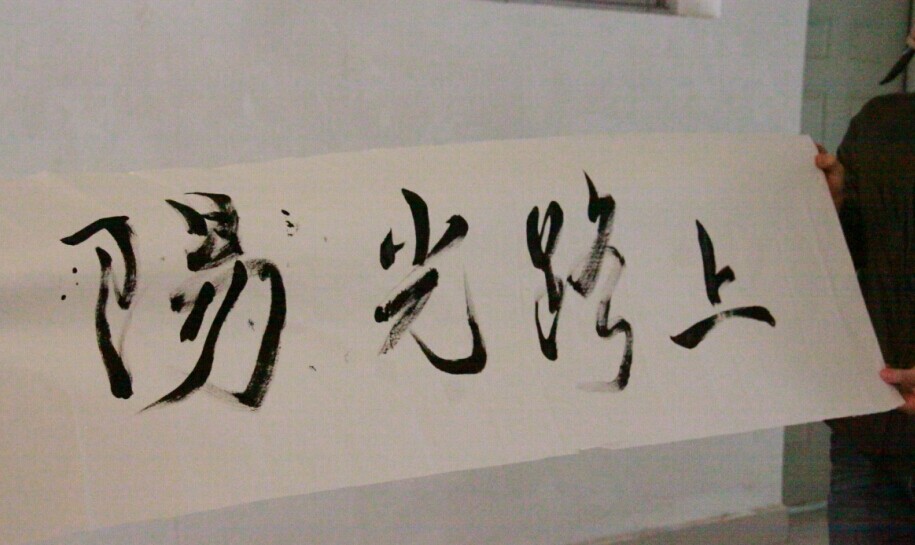 陽光路上